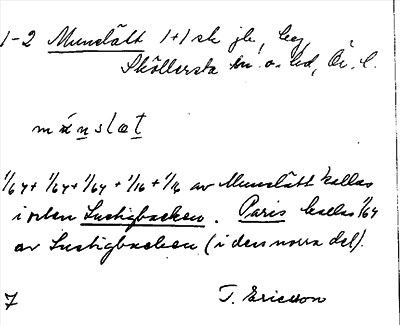 1-2 Munslätt 1+1 sk jb, beg
Sköllersta sn o. hd, Ör. l.
mánslæt
1/64 + 1/64 + 1/64 + 1/16 + 1/16 av Munslätt kallas
i orten Lustigbacken. Paris kallas 1/64
av Lustigbacken (i den norra del).
7 T. Ericsson